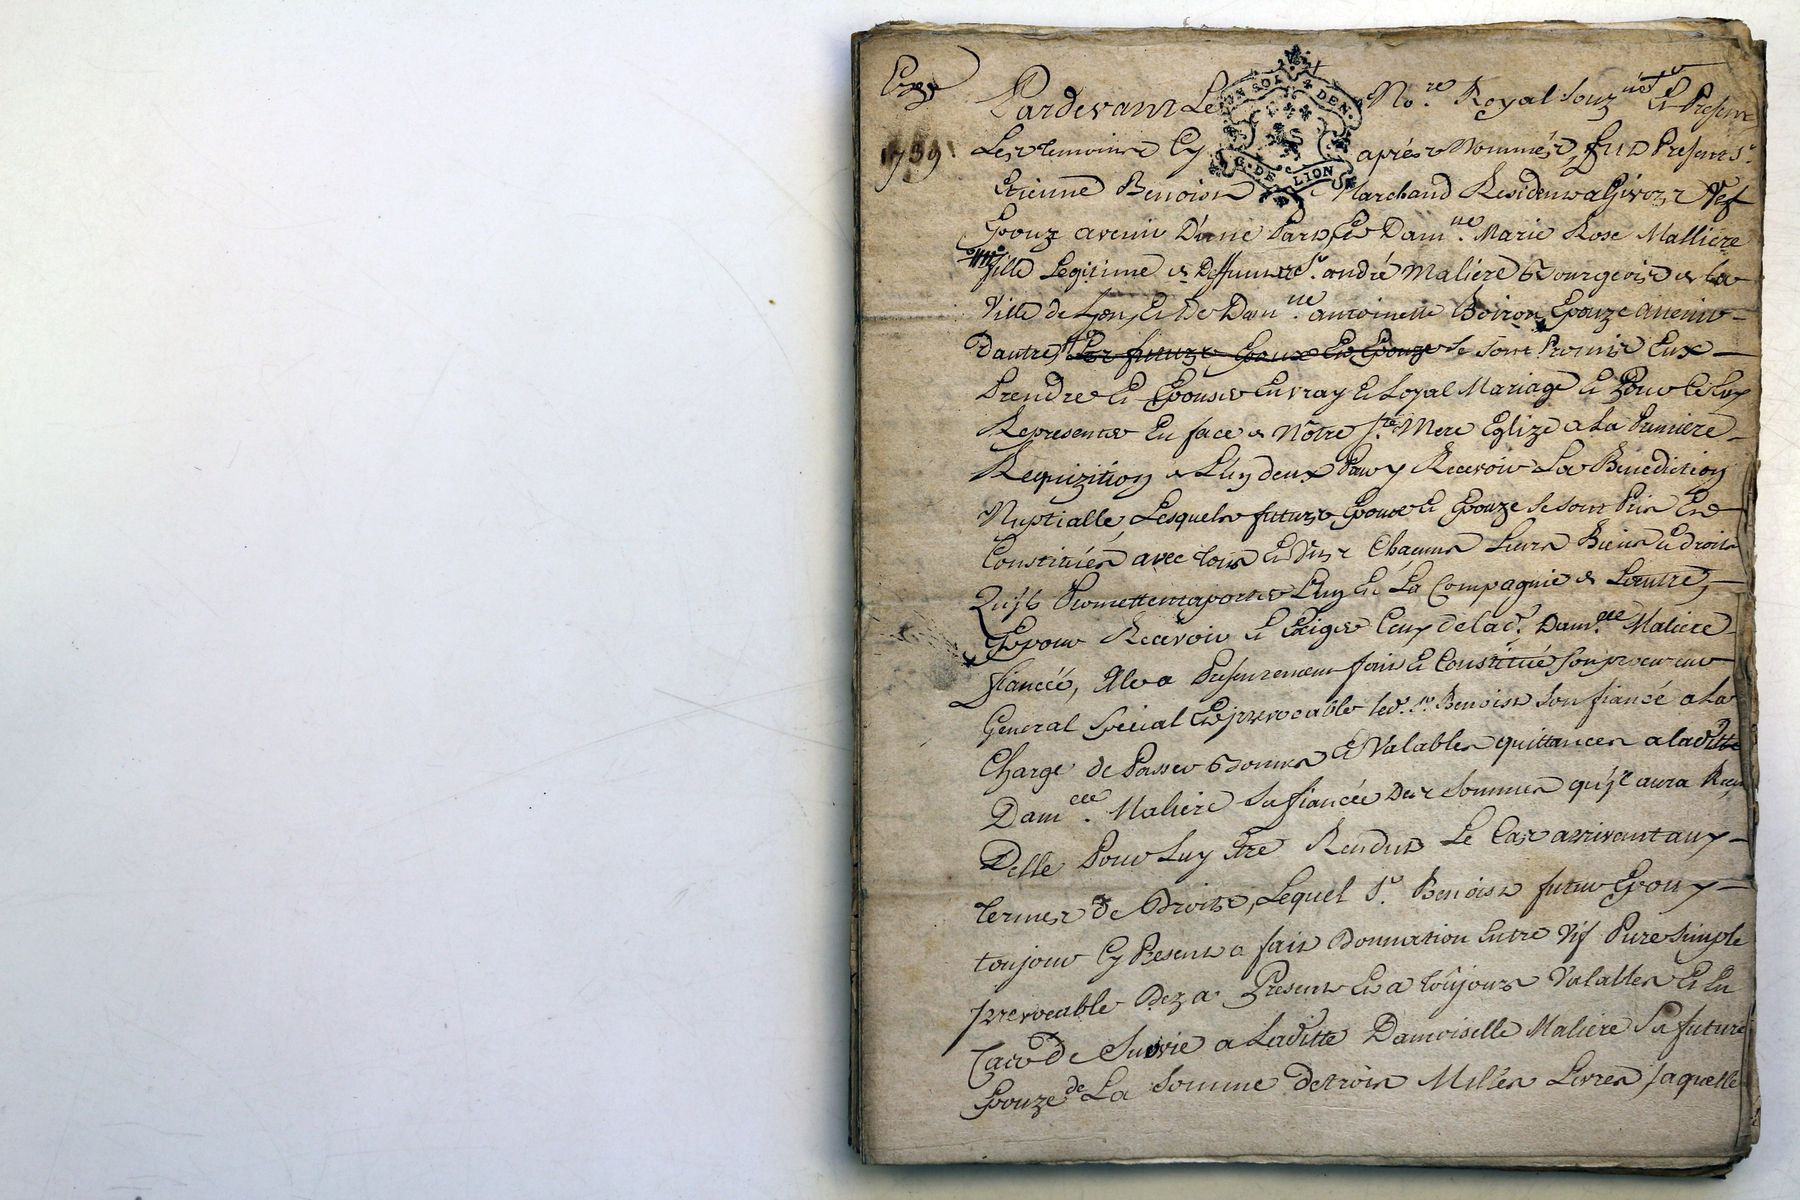 Exp
1759
Pardevant Le No.re Royal Souz.né Et Presens
UN SOL 4 DEN.
G. DE LION
Les temoins Cy après Nommés, fut Present Sr.
Etienne Benoist Marchand Resident a Givors Vef
Epoux avenir D'une Part, Et Dam.lle Marie Rose Mallière
fille Legitime de Deffunt Sr. andré Maliere Bourgeois de la
Ville de Lyon, Et De Dam.lle antoinette Boiron Epouze avenir
Dautre, Les futurs Epoux Et Epouze se sont Promis Eux
Prendre Et Epouser En vray Et Loyal Mariage Et Pour Ce Luy
Representer En face de Nôtre S.te Mere Eglize a La Premiere
Requizition de L'un deux Pour y Recevoir La Benediction
Nuptialle, Lesquels futurs Epoux Et Epouze se sont Pris Et
Constitués avec tous Et Chacuns Leurs Biens Et droits
Qu'ils Promettent aporter L'un En La Compagnie de Lautre,
Et pour Recevoir Et Exiger Ceux de lad. Dam.lle Maliere
fiancéé, Elle a Presentement fait Et Constitué son procureur
General Special Et jrrevocable led. Sr. Benoist Son fiancé a La
Charge de Passer Bonnes Et Valables quittances a laditte
Dam.lle Maliere Sa fiancée Des Sommes qu'jl aura Reçu
Delle Pour Luy Etre Rendus Le Cas arrivant aux
termes de Droits, Lequel Sr. Benoist futur Epoux
toujour Cy Present a fait Donnation Entre Vif Pure Simple
jrrevocable Dez a Present Et a Toûjours Valables Et En
Cas de Survie a Laditte Damoiselle Maliere Sa future
Epouze de La Somme de trois Milles Livres, Laquelle